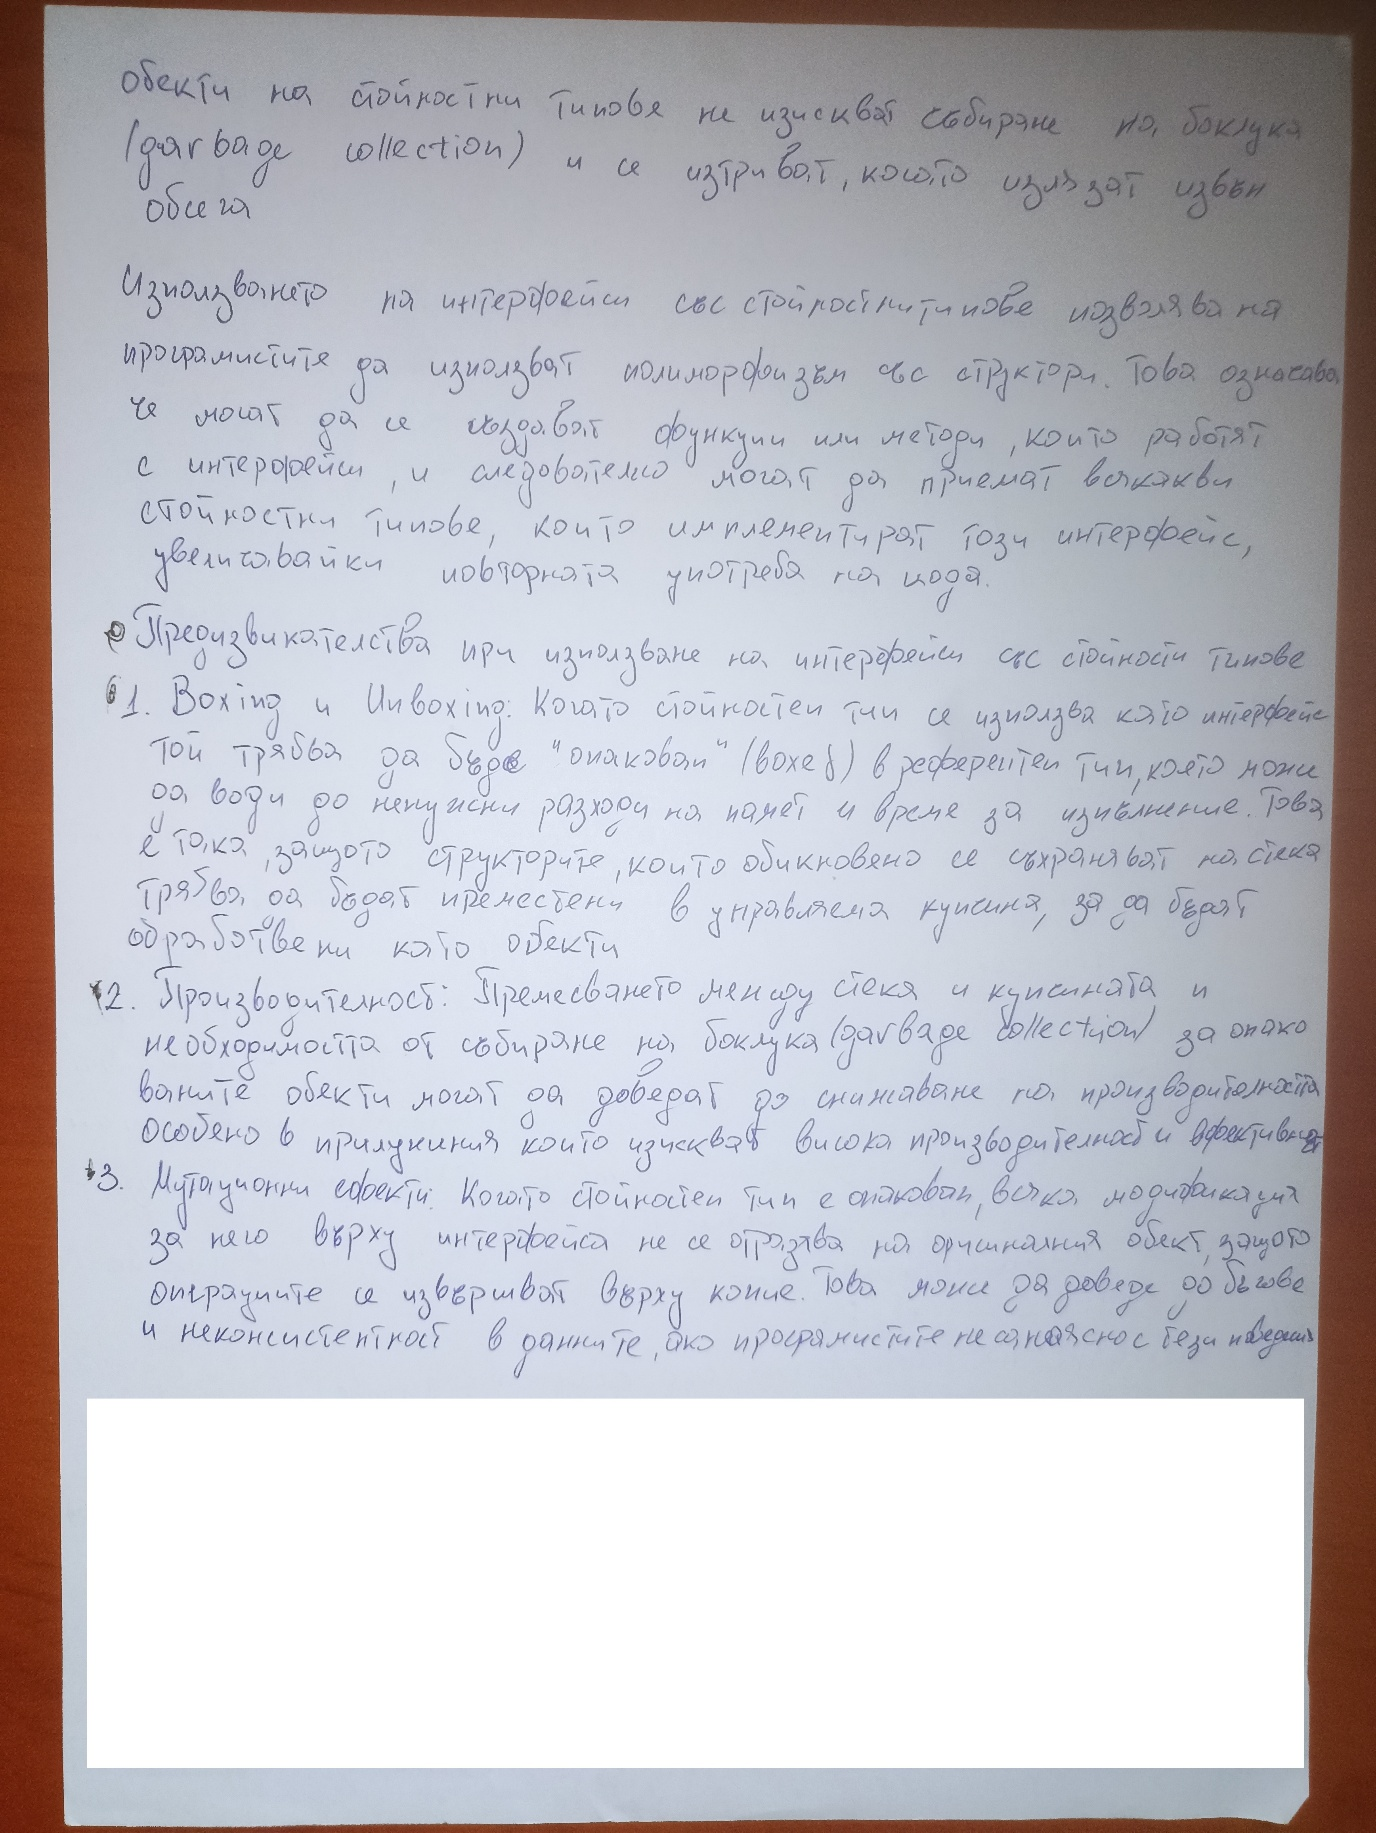 обекти на стойностни типове не изискват събиране на боклука
(garbage collection) и се изтриват, когато излязат извън
обсега
Използването на интерфейси със стойностни типове позволява на
програмистите да използват полиморфизъм със структори. Това означава
че могат да се създават функции или методи, които работят
с интерфейси, и следователно могат да приемат всякакви
стойностни типове, които имплементират този интерфейс,
увеличавайки повторната употреба на кода.
Предизвикателства при използване на интерфейси със стойности типове
1. Boxing и Unboxing: Когато стойностен тип се използва като интерфейс
той трябва да бъде "опакован" (boxed) в референтен тип, което може
да води до ненужни разходи на памет и време за изпълнение. Това
е така, защото структорите, които обикновено се съхраняват на стека
трябва да бъдат преместени в управляема купчина, за да бъдат
обработвени като обекти
2. Производителност: Премесването между стека и купчината и
необходимостта от събиране на боклука (garbage collection) за опако
ваните обекти могат да доведат до снижаване на производителността
Особено в прилужения които изискват висока производителност и
3. Мутационни ефекти: Когато стойностен тип е опакован, всяка модификация
за него върху интерфейса не се отразява на оригиналния обект, защото
операциите се извършват върху копие. Това може да доведе до бъгове
и неконсистентност в данните, ако програмистите не са наясно с тези